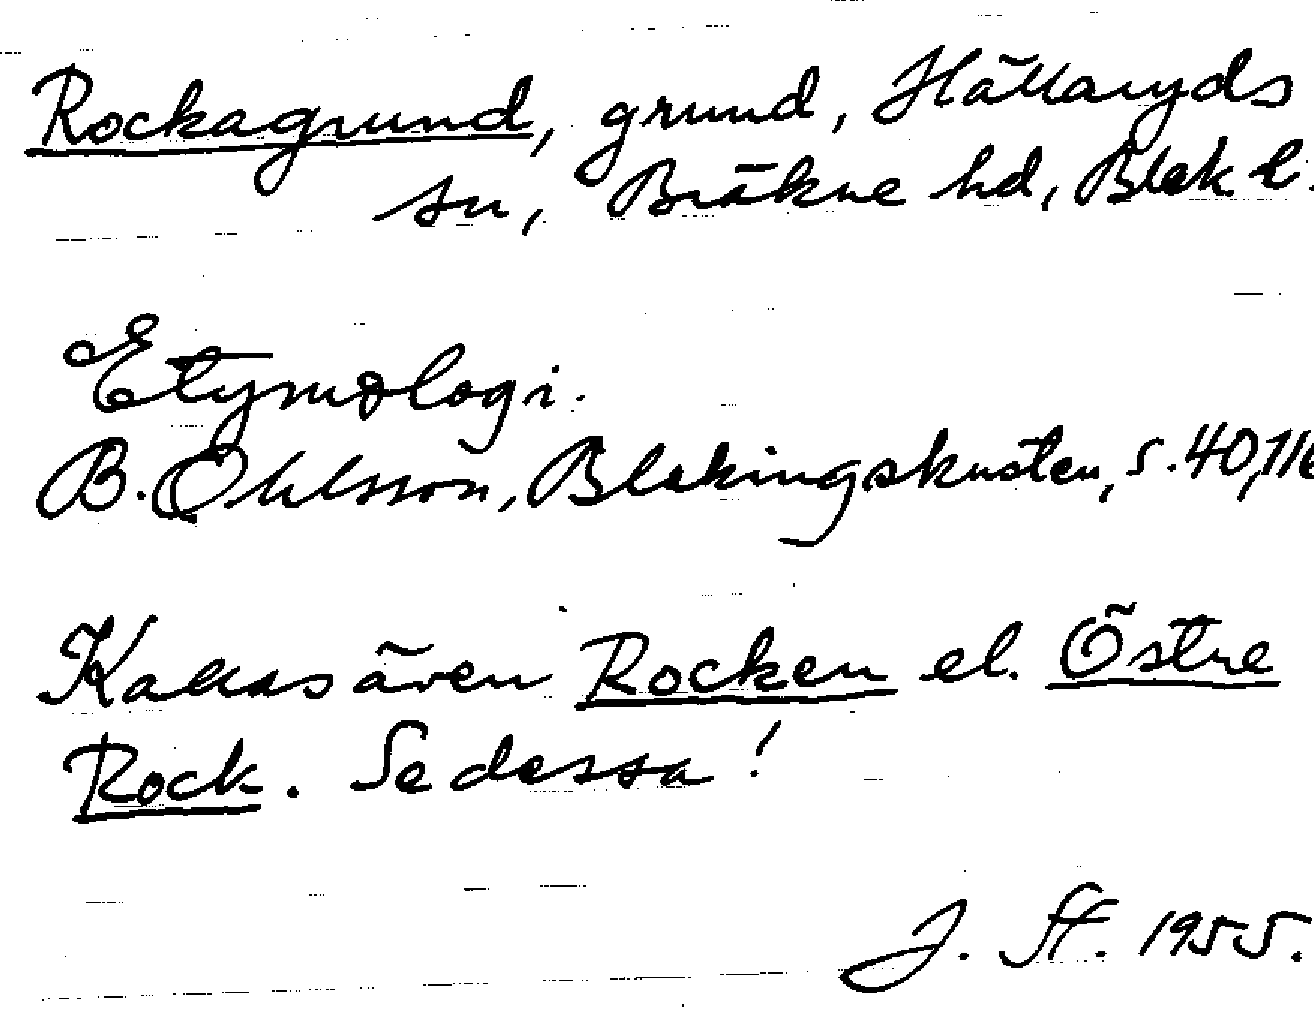 Rockagrund, grund, Hällaryds
sn, Bräkne hd, Blek. l.
Etymologi.
B. Ohlsson, Blekingskusten, s. 40, 116
Kallas även Rocken el. Östre
Rock. Se dessa!
J. Sf. 1955.